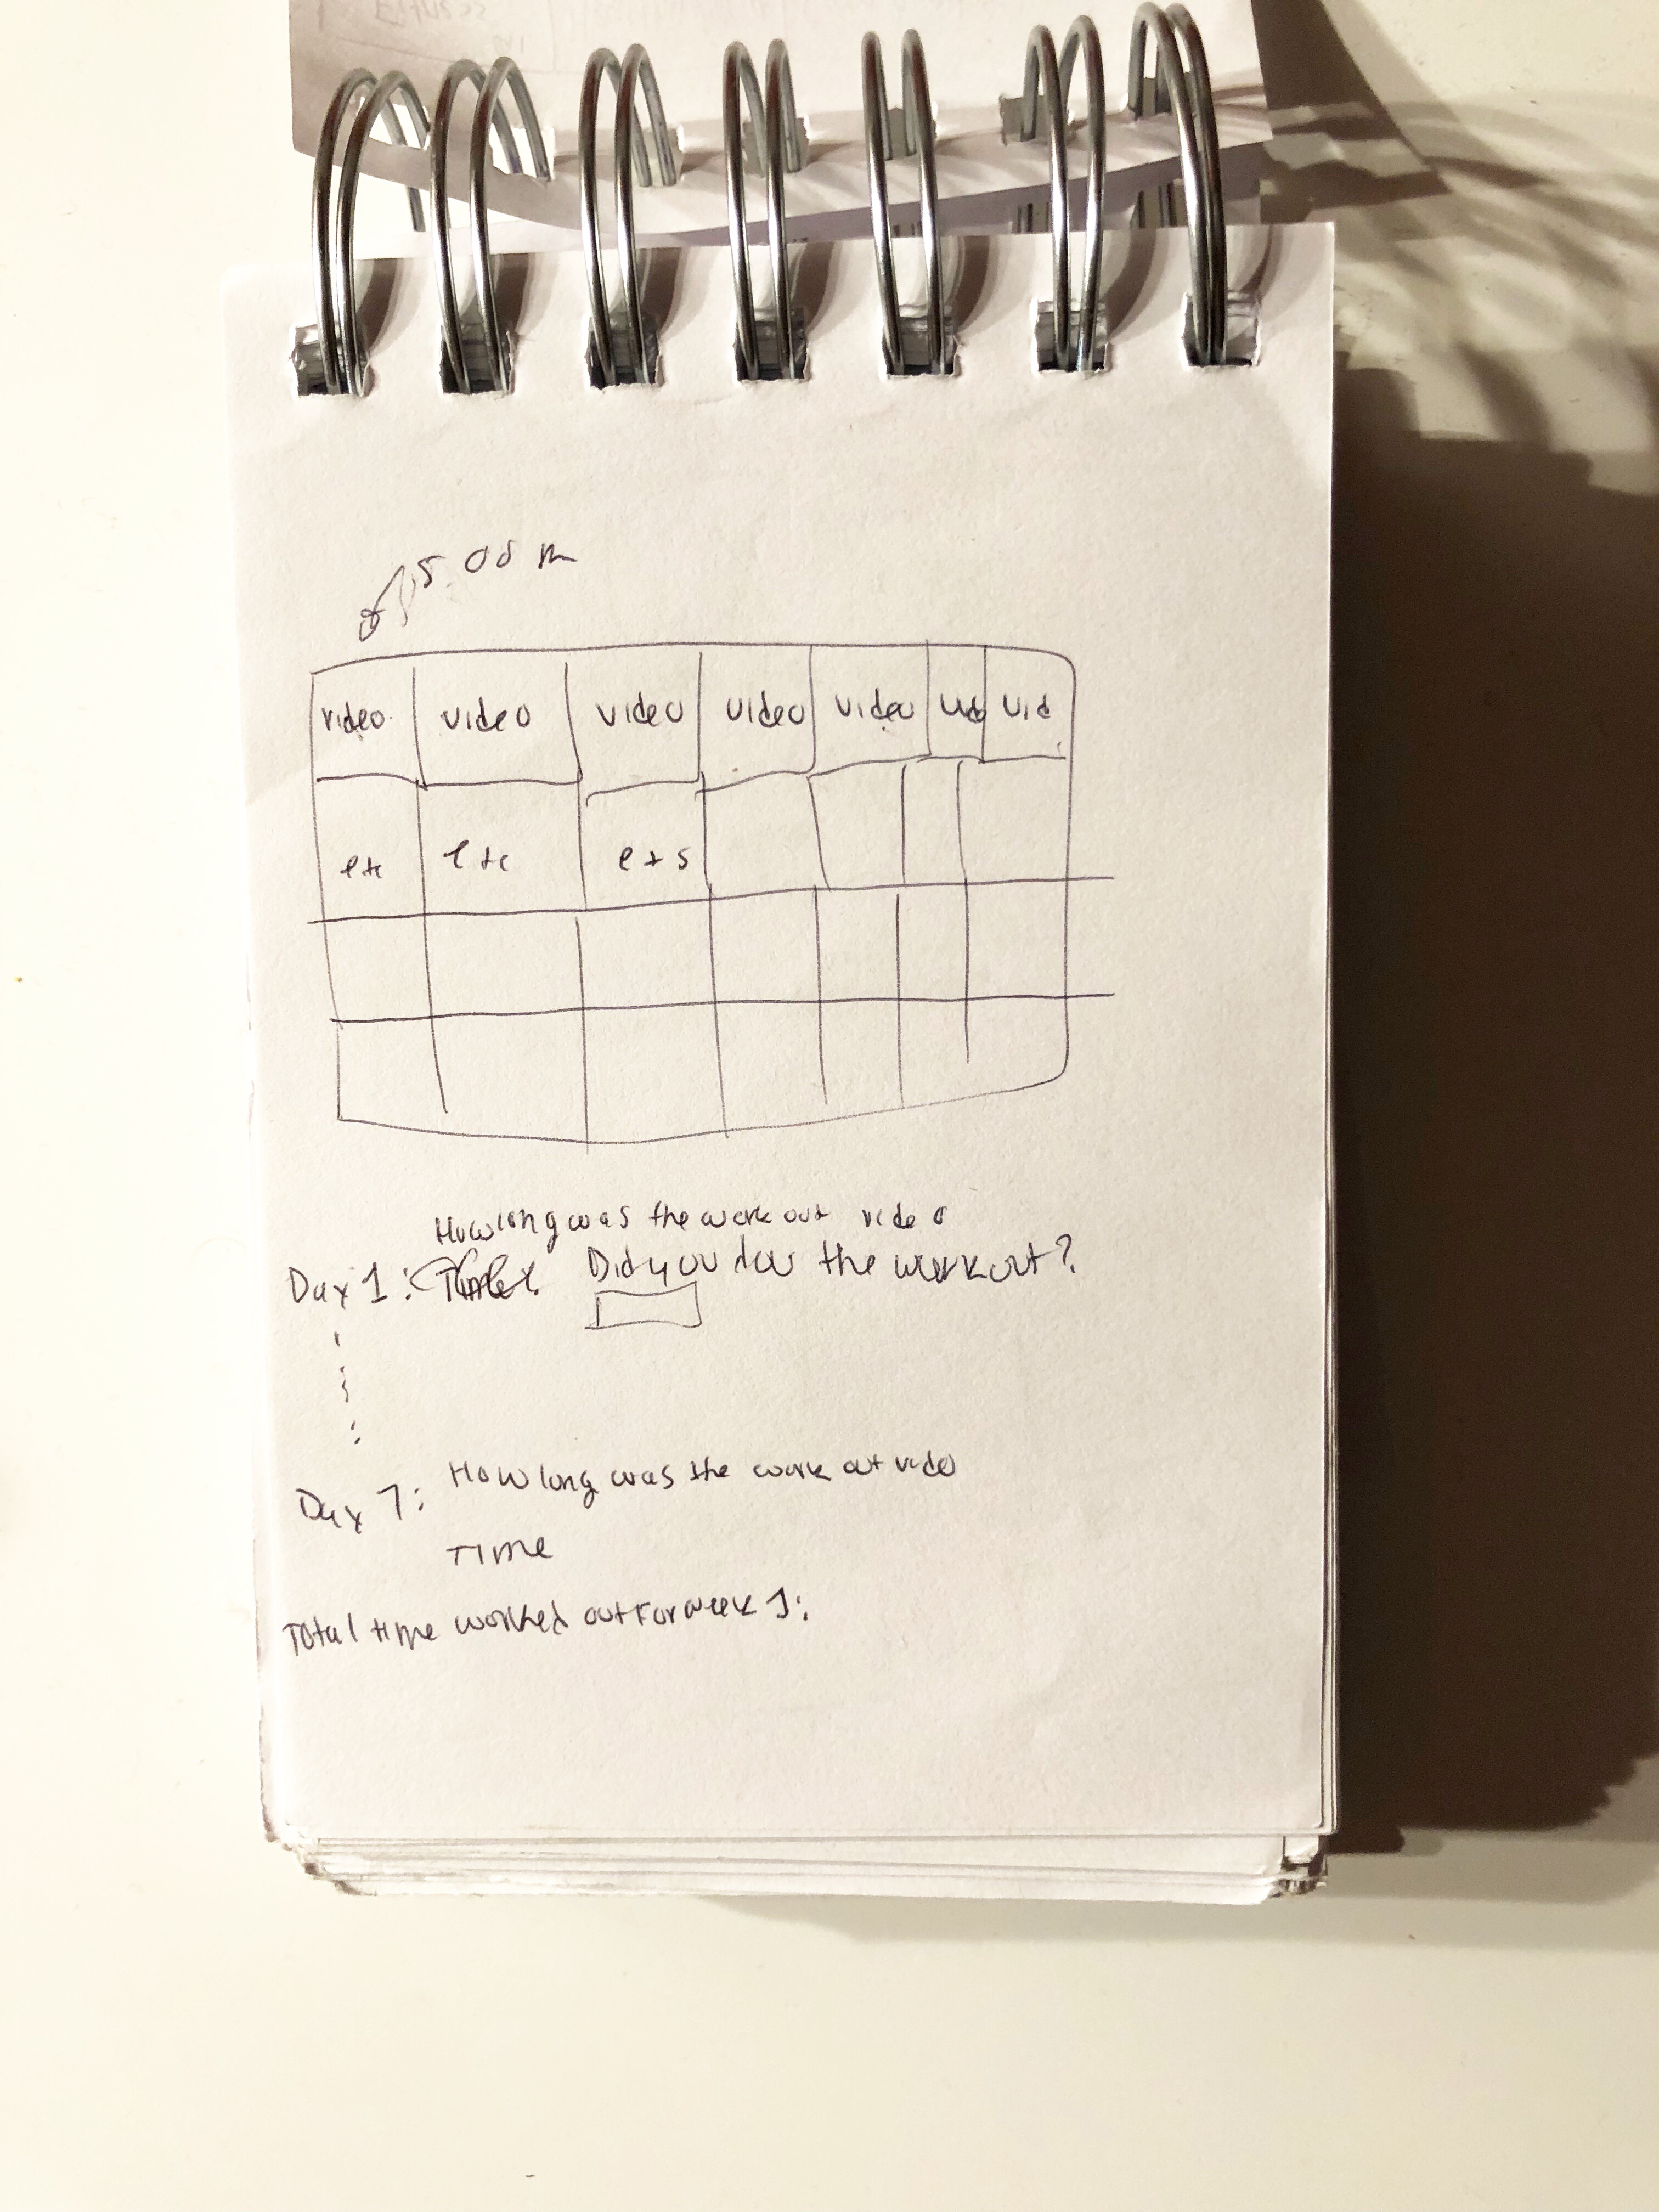 5.00 m
video video video video video vid vid
etc etc ets
How long was the work out video
Day 1: Did you dow the workout?
Day 7: How long was the work out video
TIME
Total time worked out For week 1: